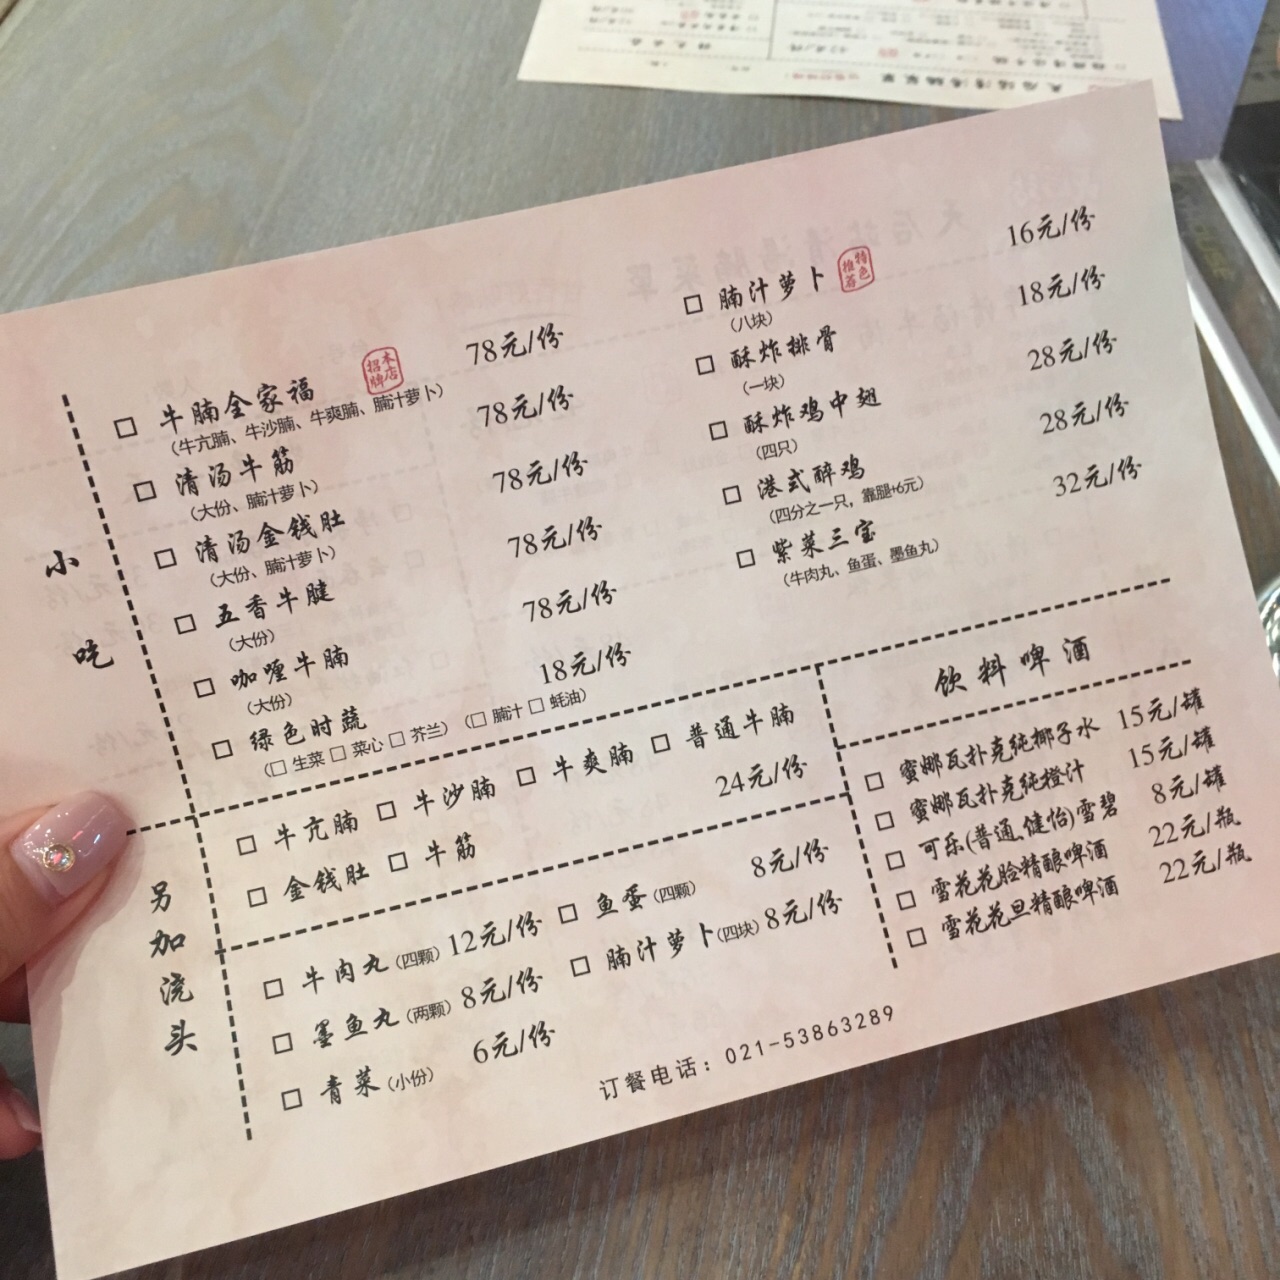 小吃
牛腩全家福 本店招牌 78元/份
（牛亢腩、牛沙腩、牛爽腩、腩汁萝卜）
清汤牛筋 78元/份
（大份、腩汁萝卜）
清汤金钱肚 78元/份
（大份、腩汁萝卜）
五香牛腱 78元/份
（大份）
咖喱牛腩 78元/份
（大份）
绿色时蔬 18元/份
（□ 生菜 □ 菜心 □ 芥兰）（□ 腩汁 □ 蚝油）
腩汁萝卜 特色推荐 16元/份
（八块）
酥炸排骨 18元/份
（一块）
酥炸鸡中翅 28元/份
（四只）
港式醉鸡 28元/份
（四分之一只，靠腿+6元）
紫菜三宝 32元/份
（牛肉丸、鱼蛋、墨鱼丸）
另加浇头
牛亢腩 牛沙腩 牛爽腩 普通牛腩
金钱肚 牛筋 24元/份
牛肉丸（四颗）12元/份 鱼蛋（四颗） 8元/份
墨鱼丸（两颗）8元/份 腩汁萝卜（四块）8元/份
青菜（小份） 6元/份
饮料啤酒
蜜娜瓦扑克纯椰子水 15元/罐
蜜娜瓦扑克纯橙汁 15元/罐
可乐(普通、健怡)雪碧 8元/罐
雪花花脸精酿啤酒 22元/瓶
雪花花旦精酿啤酒 22元/瓶
订餐电话：021-53863289